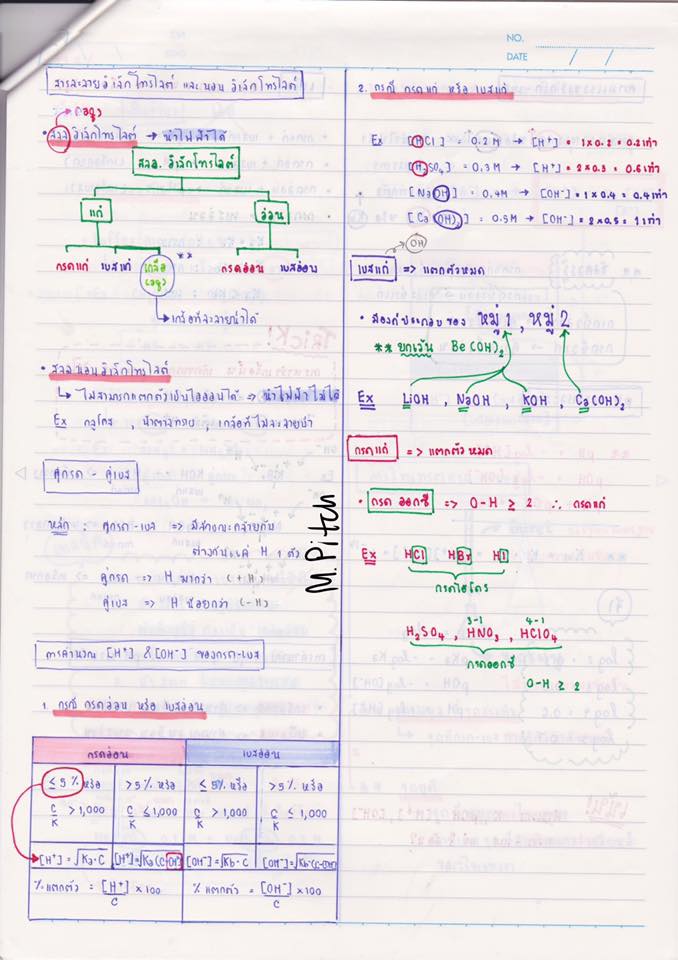 NO.
DATE / /
สารละลายอิเล็กโทรไลต์ และ นอนอิเล็กโทรไลต์
(aq)
• สลล อิเล็กโทรไลต์ → นำไฟฟ้าได้
สลล. อิเล็กโทรไลต์
แก่
อ่อน
กรดแก่ เบสแก่ เกลือ (aq) ** กรดอ่อน เบสอ่อน
→ เกลือที่ละลายน้ำได้
• สลล นอนอิเล็กโทรไลต์
↳ ไม่สามารถแตกตัวเป็นไอออนได้ ⇒ นำไฟฟ้าไม่ได้
Ex กลูโคส , น้ำตาลทราย , เกลือที่ไม่ละลายน้ำ
คู่กรด - คู่เบส
หลัก : คู่กรด - เบส => มีลักษณะคล้ายกัน
ต่างกันแค่ H 1 ตัว
คู่กรด => H มากกว่า (+H)
คู่เบส => H น้อยกว่า (-H)
การคำนวณ [H⁺] & [OH⁻] ของกรด-เบส
1. กรณี กรดอ่อน หรือ เบสอ่อน
กรดอ่อน เบสอ่อน
≤ 5% หรือ >5% หรือ ≤ 5% หรือ >5% หรือ
C/K > 1,000 C/K ≤ 1,000 C/K > 1,000 C/K ≤ 1,000
[H⁺]=√Ka·C [H⁺]=√Ka(C-[H⁺]) [OH⁻]=√Kb·C [OH⁻]=√Kb(C-[OH⁻])
% แตกตัว = [H⁺]/C × 100 % แตกตัว = [OH⁻]/C × 100
M.Pitch
2. กรณี กรดแก่ หรือ เบสแก่
Ex [HCl] = 0.2M → [H⁺] = 1 x 0.2 = 0.2 เท่า
[H₂SO₄] = 0.3M → [H⁺] = 2 x 0.3 = 0.6 เท่า
[NaOH] = 0.4M → [OH⁻] = 1 x 0.4 = 0.4 เท่า
[Ca(OH)₂] = 0.5M → [OH⁻] = 2 x 0.5 = 1 เท่า
OH
เบสแก่ => แตกตัวหมด
• มีองค์ประกอบของ หมู่ 1 , หมู่ 2
** ยกเว้น Be(OH)₂
Ex LiOH , NaOH , KOH , Ca(OH)₂
กรดแก่ => แตกตัวหมด
• กรด ออกซี => O-H ≥ 2 ∴ กรดแก่
Ex HCl HBr HI
กรดไฮโดร
3-1 4-1
H₂SO₄ , HNO₃ , HClO₄
กรดออกซี
O-H ≥ 2